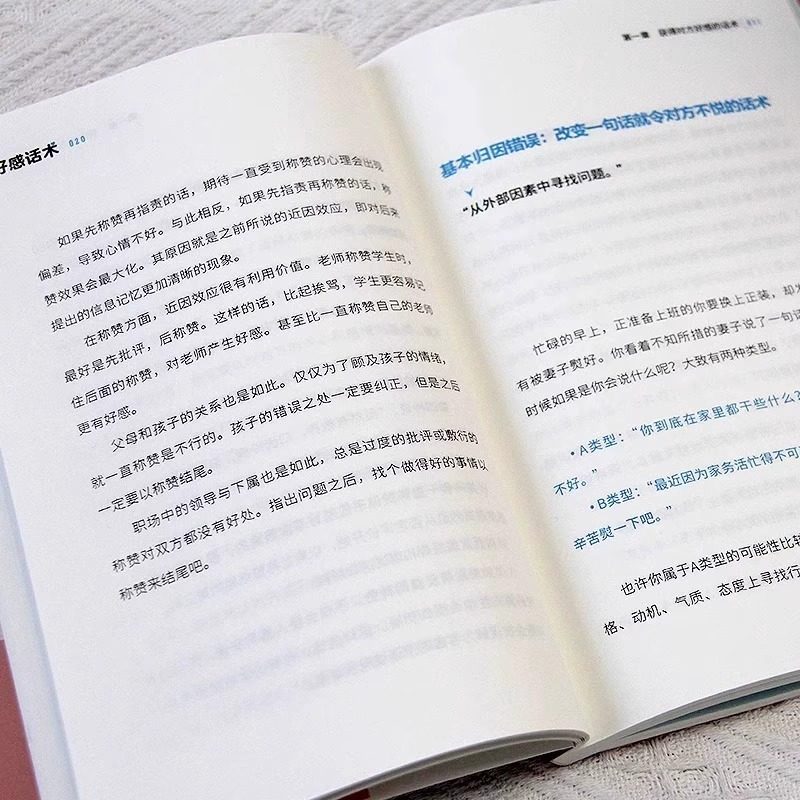 好感话术 020
如果先称赞再指责的话，期待一直受到称赞的心理会出现
偏差，导致心情不好。与此相反，如果先指责再称赞的话，称
赞效果会最大化。其原因就是之前所说的近因效应，即对后来
提出的信息记忆更加清晰的现象。
在称赞方面，近因效应很有利用价值。老师称赞学生时，
最好是先批评，后称赞。这样的话，比起挨骂，学生更容易记
住后面的称赞，对老师产生好感。甚至比一直称赞自己的老师
更有好感。
父母和孩子的关系也是如此。仅仅为了顾及孩子的情绪，
就一直称赞是不行的。孩子的错误之处一定要纠正，但是之后
一定要以称赞结尾。
职场中的领导与下属也是如此，总是过度的批评或敷衍的
称赞对双方都没有好处。指出问题之后，找个做得好的事情以
称赞来结尾吧。
第一章 获得对方好感的话术
基本归因错误：改变一句话就令对方不悦的话术
“从外部因素中寻找问题。”
忙碌的早上，正准备上班的你要换上正装，却发
有被妻子熨好。你看着不知所措的妻子说了一句话
时候如果是你会说什么呢？大致有两种类型。
•A类型：“你到底在家里都干些什么？
不好。”
•B类型：“最近因为家务活忙得不可
辛苦熨一下吧。”
也许你属于A类型的可能性比较
格、动机、气质、态度上寻找行